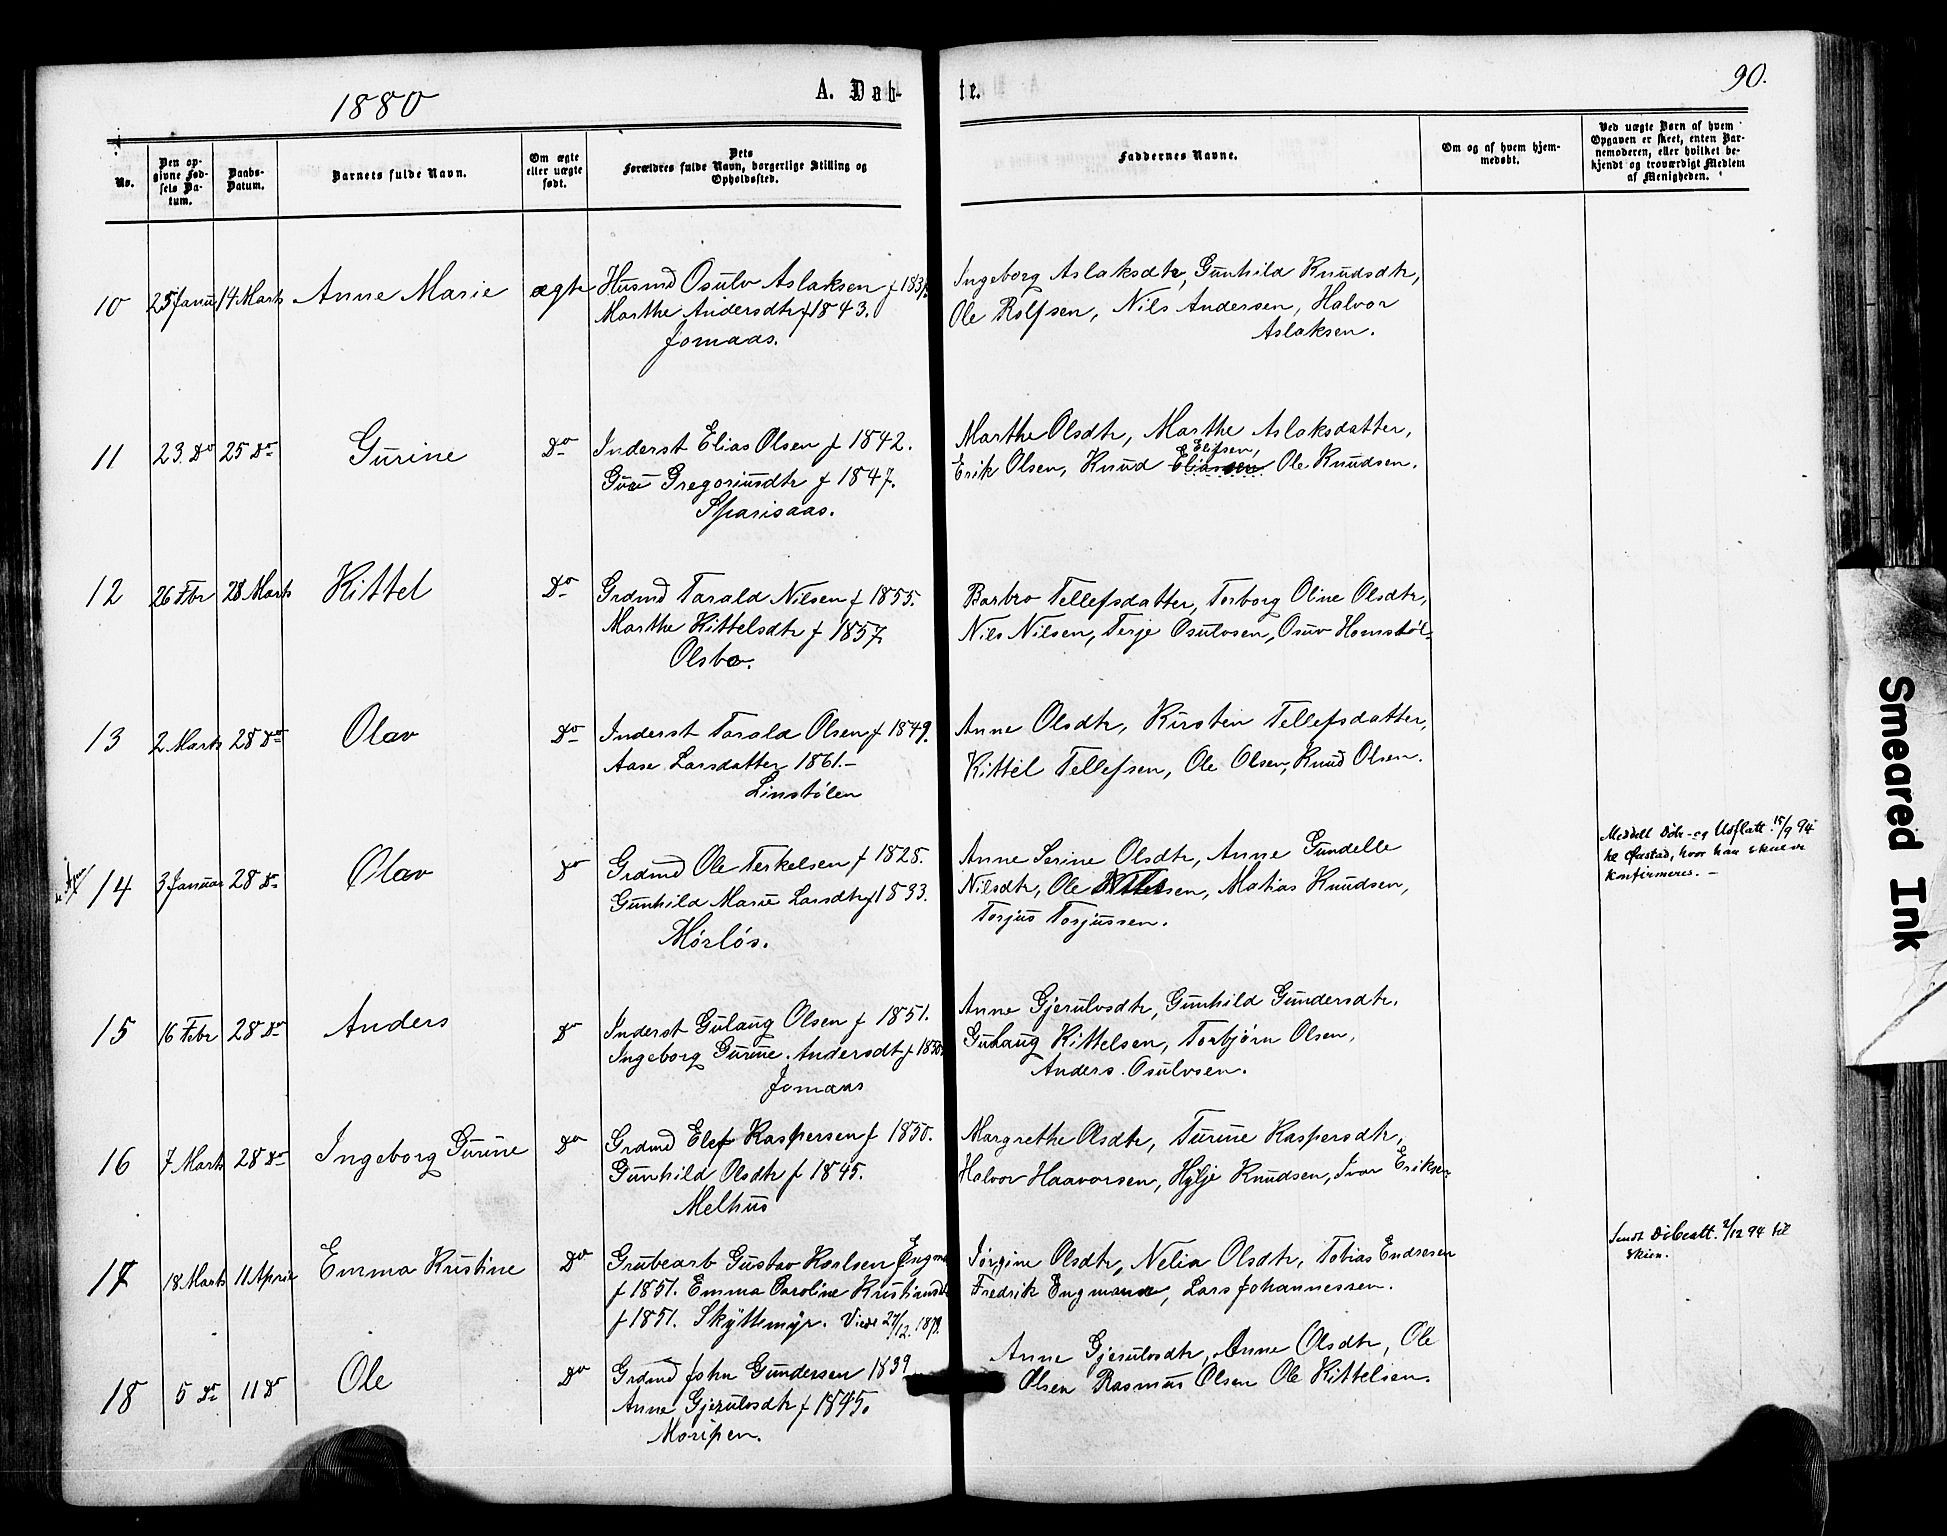 1880
A. Døb-
te.
90.
No.
Den op-
givne Fød-
sels Da-
tum.
Daabs-
Datum.
Barnets fulde Navn.
Om ægte
eller uægte
født.
Dets
Forældres fulde Navn, borgerlige Stilling og
Opholdssted.
Faddernes Navne.
Om og af hvem hjem-
medøbt.
Ved uægte Børn af hvem
Opgaven er skeet, enten Bar-
nemoderen, eller hvilket be-
kjendt og troværdigt Medlem
af Menigheden.
10 25 Januar 14 Marts Anne Marie ægte Husmd Osulv Aslaksen f 183
Marthe Andersdtr f 1843.
Jomaas.
Ingeborg Aslaksdtr, Gunhild Knudsdtr,
Ole Rolfsen, Nils Andersen, Halvor
Aslaksen.
11 23. Do 25 Do Gurine Do Inderst Elias Olsen f 1842.
Guri Gregoriusdtr f 1847.
Sparisaas.
Marthe Olsdtr, Marthe Aslaksdatter,
Elifsen,
Erik Olsen, Knud Eliassen Ole Knudsen.
12 26 Febr 28 Marts Kittel Do Grdmd Tarald Nilsen f 1855.
Marthe Kittelsdtr f 1857
Olsbo.
Barbro Tellefsdatter, Torborg Oline Olsdtr,
Nils Nilsen, Terje Osulvsen, Osuv Homstøl
13 2 Marts 28 Do Olav Do Inderst Tarald Olsen f 1849.
Aase Larsdatter 1861.–
Linstølen
Anne Olsdtr, Kirsten Tellefsdatter,
Kittil Tellefsen, Ole Olsen, Knud Olsen.
14 3 Januar 28 Do Olav Do Grdmd Ole Terkelsen f 1828.
Gunhild Marie Larsdtr f 1833.
Mørløs.
Anne Serine Olsdtr, Anne Gundelle
Nilsdtr, Ole Nilssen, Matias Knudsen,
Torjus Torjussen.
Meddelt Døbe- og Udflatt. 15/9 94
til Øiestad, hvor han skulde
konfirmeres. –
15 16 Febr 28 Do Anders Do Inderst Gulaug Olsen f 1851.
Ingeborg Gurine Andersdt f 1850
Jomaas
Anne Gjerulvsdtr, Gunhild Gundersdtr.
Guhaug Kittelsen, Torbjørn Olsen,
Anders Osulvsen.
16 7 Marts 28 Do Ingeborg Gurine Do Grdmd Elef Kaspersen f 1850.
Gunhild Olsdtr f 1845.
Melhus
Margrethe Olsdtr, Turine Kaspersdtr,
Halvor Haavorsen, Hylje Knudsen, Ivar Eriksen
17 18 Marts 11 April Emma Kristine Do Grubearb Gustav Karlsen Engma
f 1851. Emma Karoline Kristiansdtr
f 1851. Skyttemyr. Viede 27/12. 1879.
Jørgine Olsdtr, Nelia Olsdtr, Tobias Endresen
Fredrik Engmann, Lars Johannessen.
Sendt Døbeatt. 2/12 94 til
Skien.
18 5 Do 11 Do Ole Do Grdmd John Gundersen 1839
Anne Gjerulvsdtr f 1845.
Moripen.
Anne Gjerulvsdtr, Anne Olsdtr, Ole
Olsen Rasmus Olsen Ole Kittelsen.
Smeared Ink